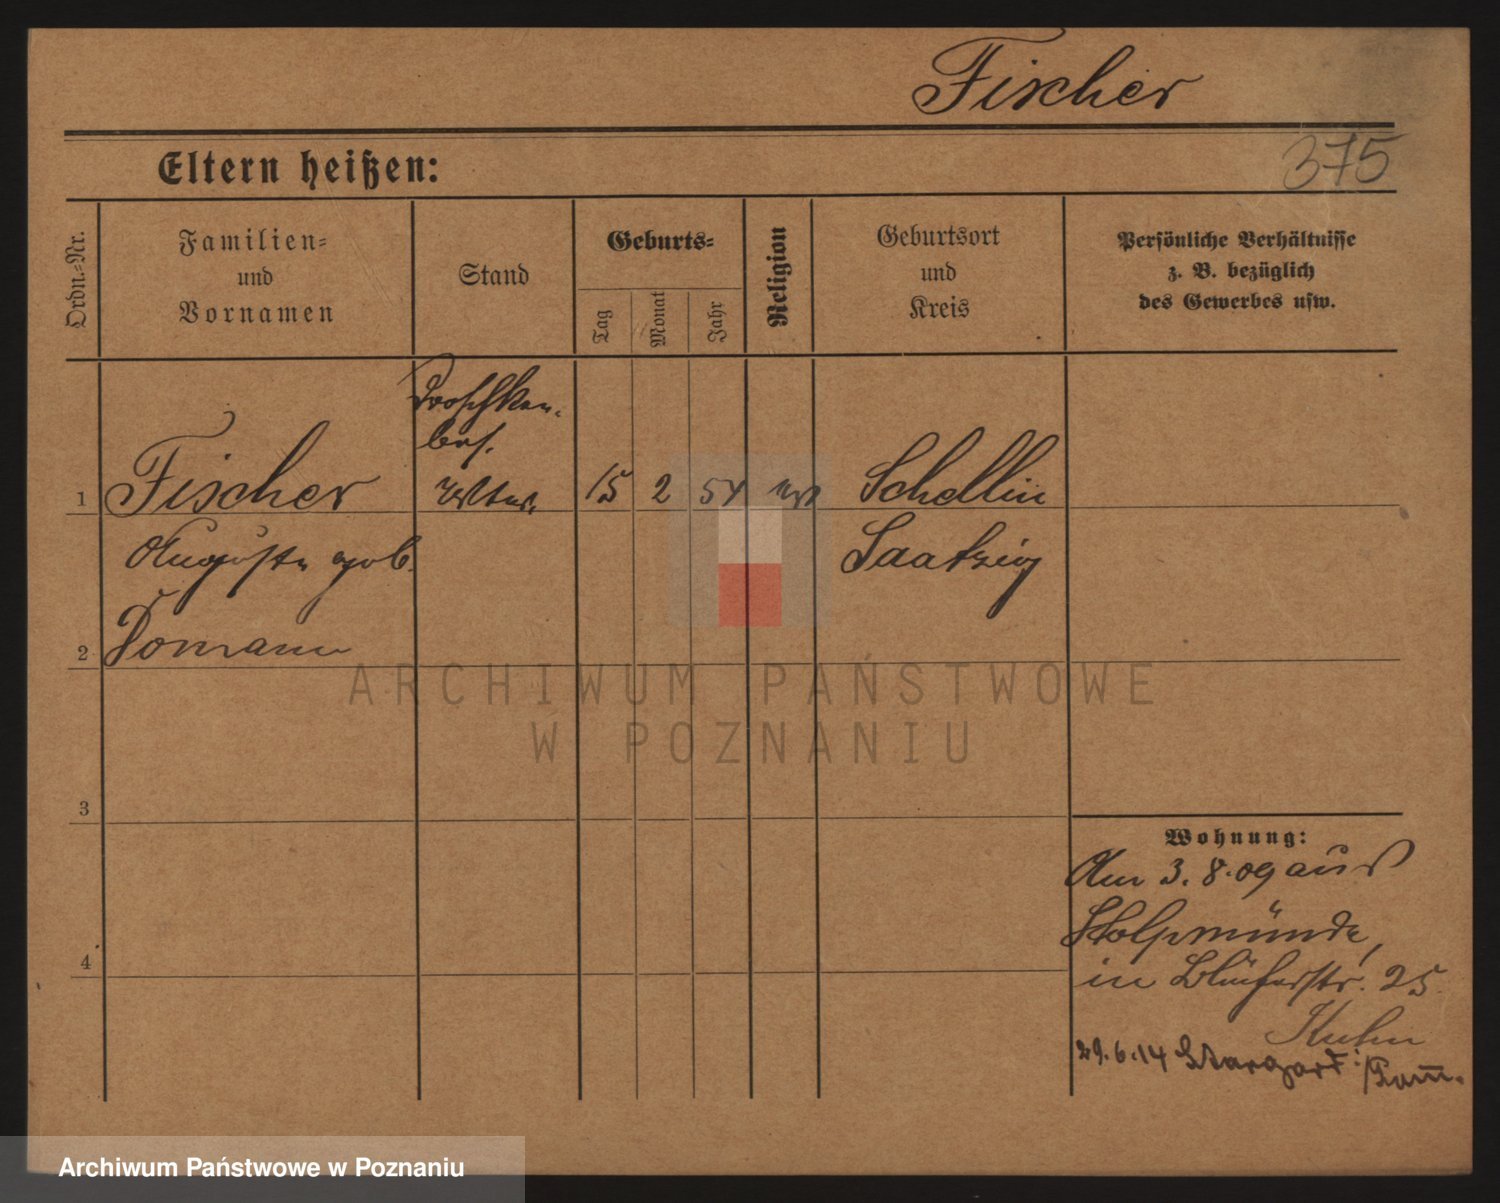 Fischer
375
Eltern heißen:
Ordn.-Nr.
Familien-
und
Vornamen
Stand
Geburts-
Tag
Monat
Jahr
Religion
Geburtsort
und
Kreis
Persönliche Verhältnisse
z. B. bezüglich
des Gewerbes usw.
Droschken-
bes.
1 Fischer 15 2 54 Schellin
Auguste geb. Saatzig
2 Domann
3
4
Wohnung:
Am 3. 8. 09 aus
Stolpmünde,
in 25
Kuhn
29.6.14 Stargard i/Pom.
ARCHIWUM PAŃSTWOWE
W POZNANIU
Archiwum Państwowe w Poznaniu